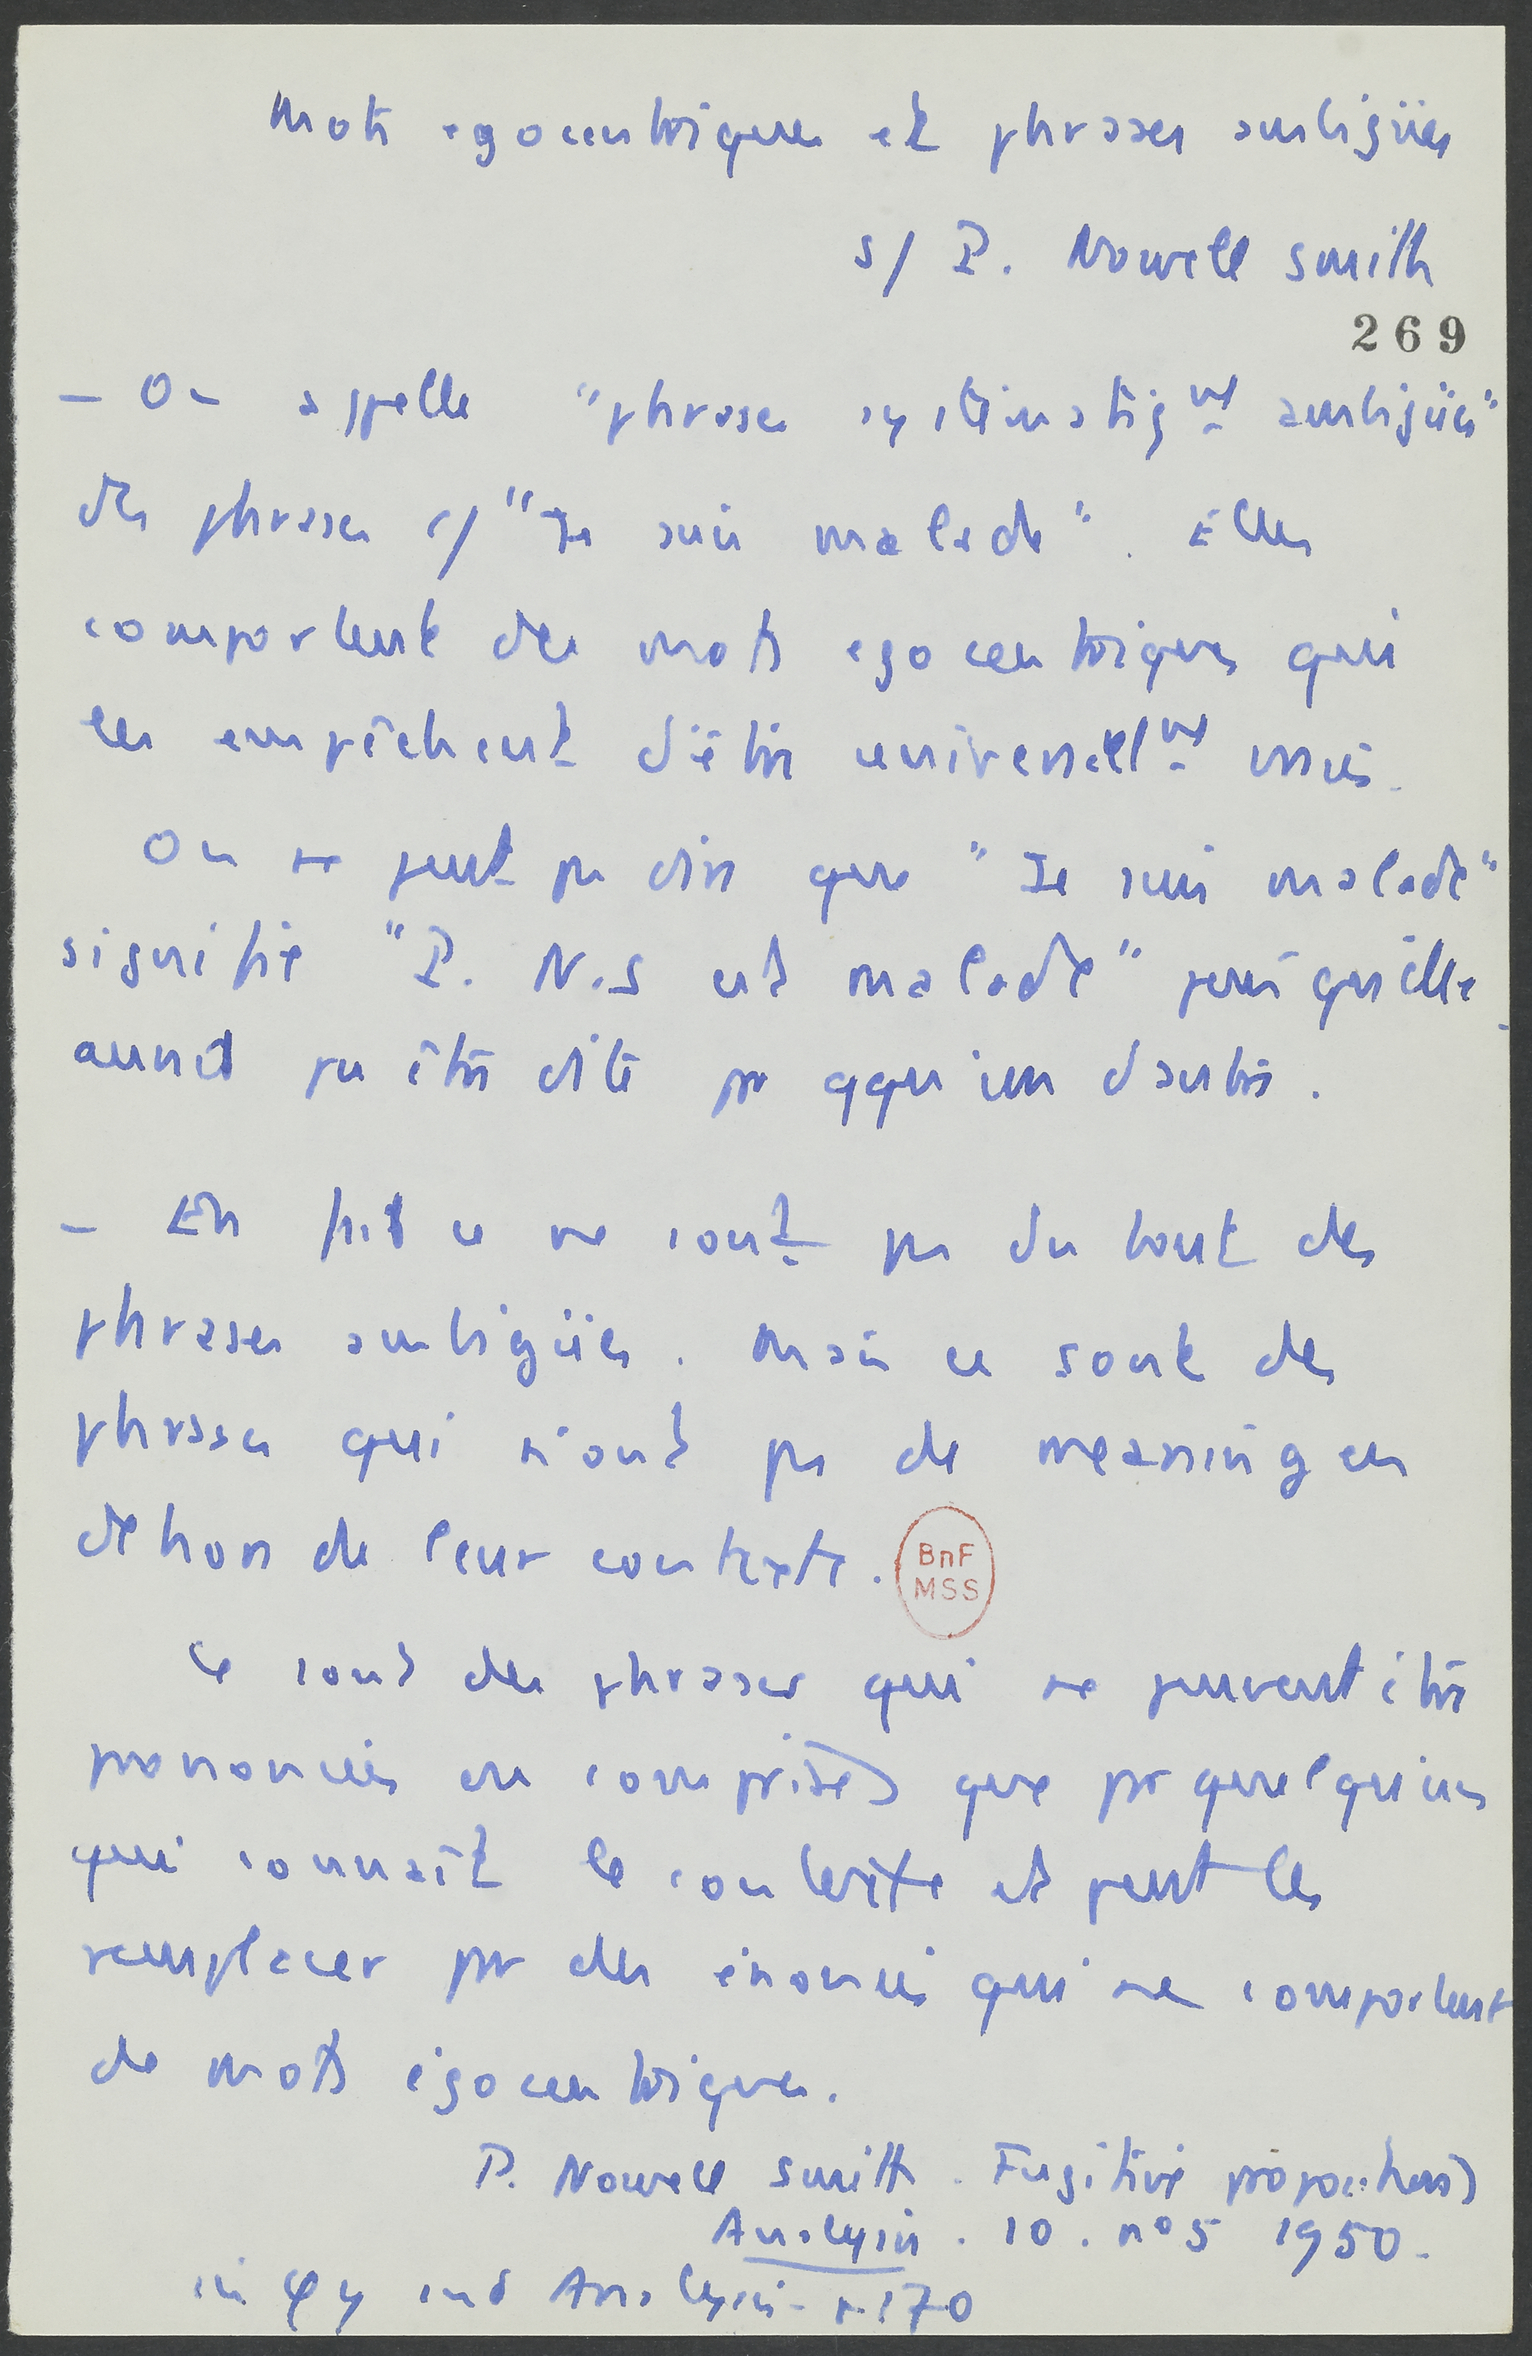 Mots egocentriques et phrases ambigües
s/ P. Nowell Smith
269
– On appelle "phrases systématiqnt ambigües"
des phrases c/ "Je suis malade". Elles
comportent des mots egocentriques qui
les empêchent d'être universellnt vraies.
On ne peut pas dire que "Je suis malade"
signifie "P. N.S est malade" puisqu'elle
aurait pu être dite par qqu'un d'autre.
– En fait ce ne sont pas du tout des
phrases ambigües. Mais ce sont des
phrases qui n'ont pas de meaning en
dehors de leur contexte.
BnF
MSS
Ce sont des phrases qui ne peuvent être
prononcées ou comprises que par quelqu'un
qui connaît le contexte et peut les
remplacer par des énoncés qui ne comportent
de mots égocentriques.
P. Nowell Smith. Fugitive propositions
Analysis. 10. no 5 1950.
in φy and Analysis p. 170